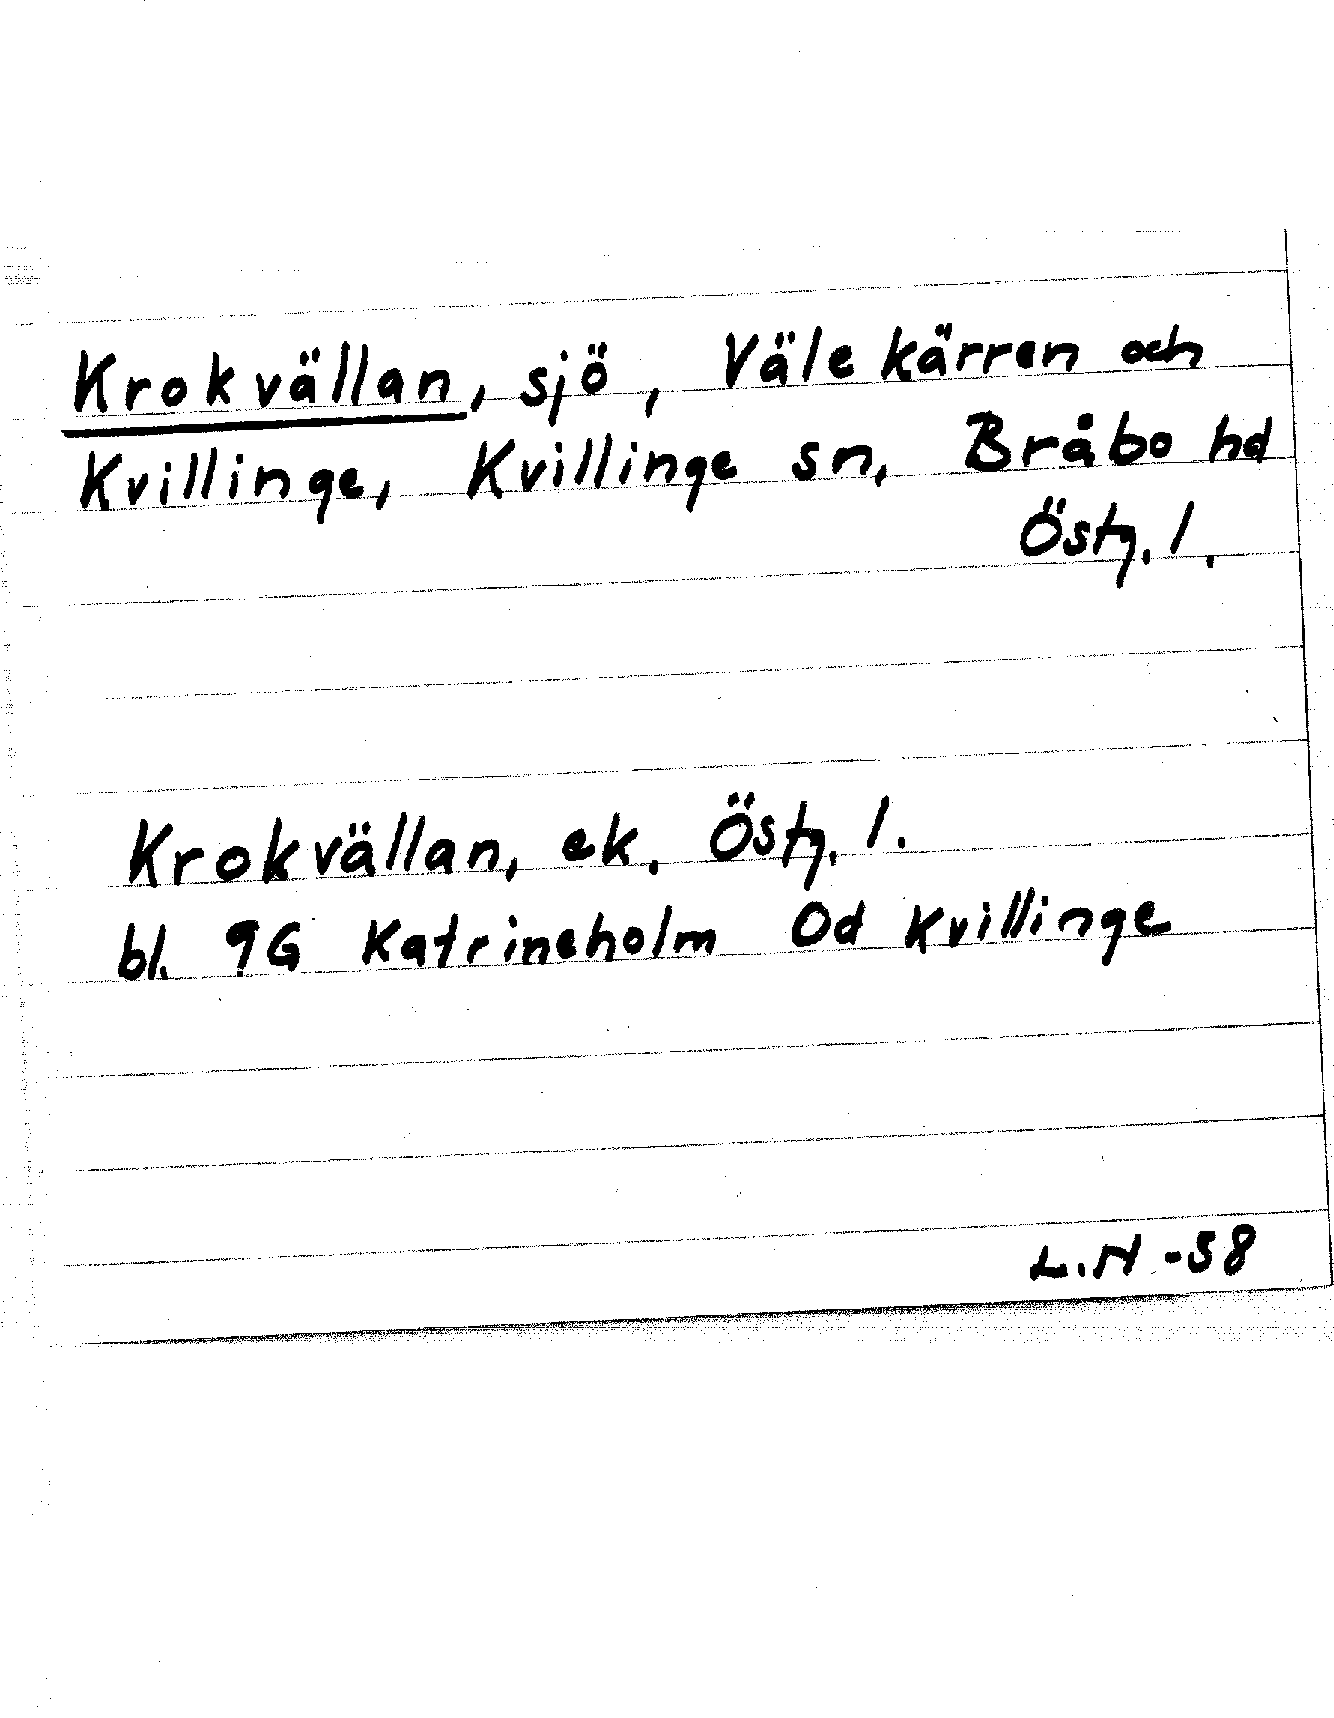 Krokvällan, sjö, Välekärren och
Kvillinge, Kvillinge sn, Bråbo hd
Östg. l.
Krokvällan, ek. Östg. l.
bl. 9G Katrineholm Od Kvillinge
L.H -58